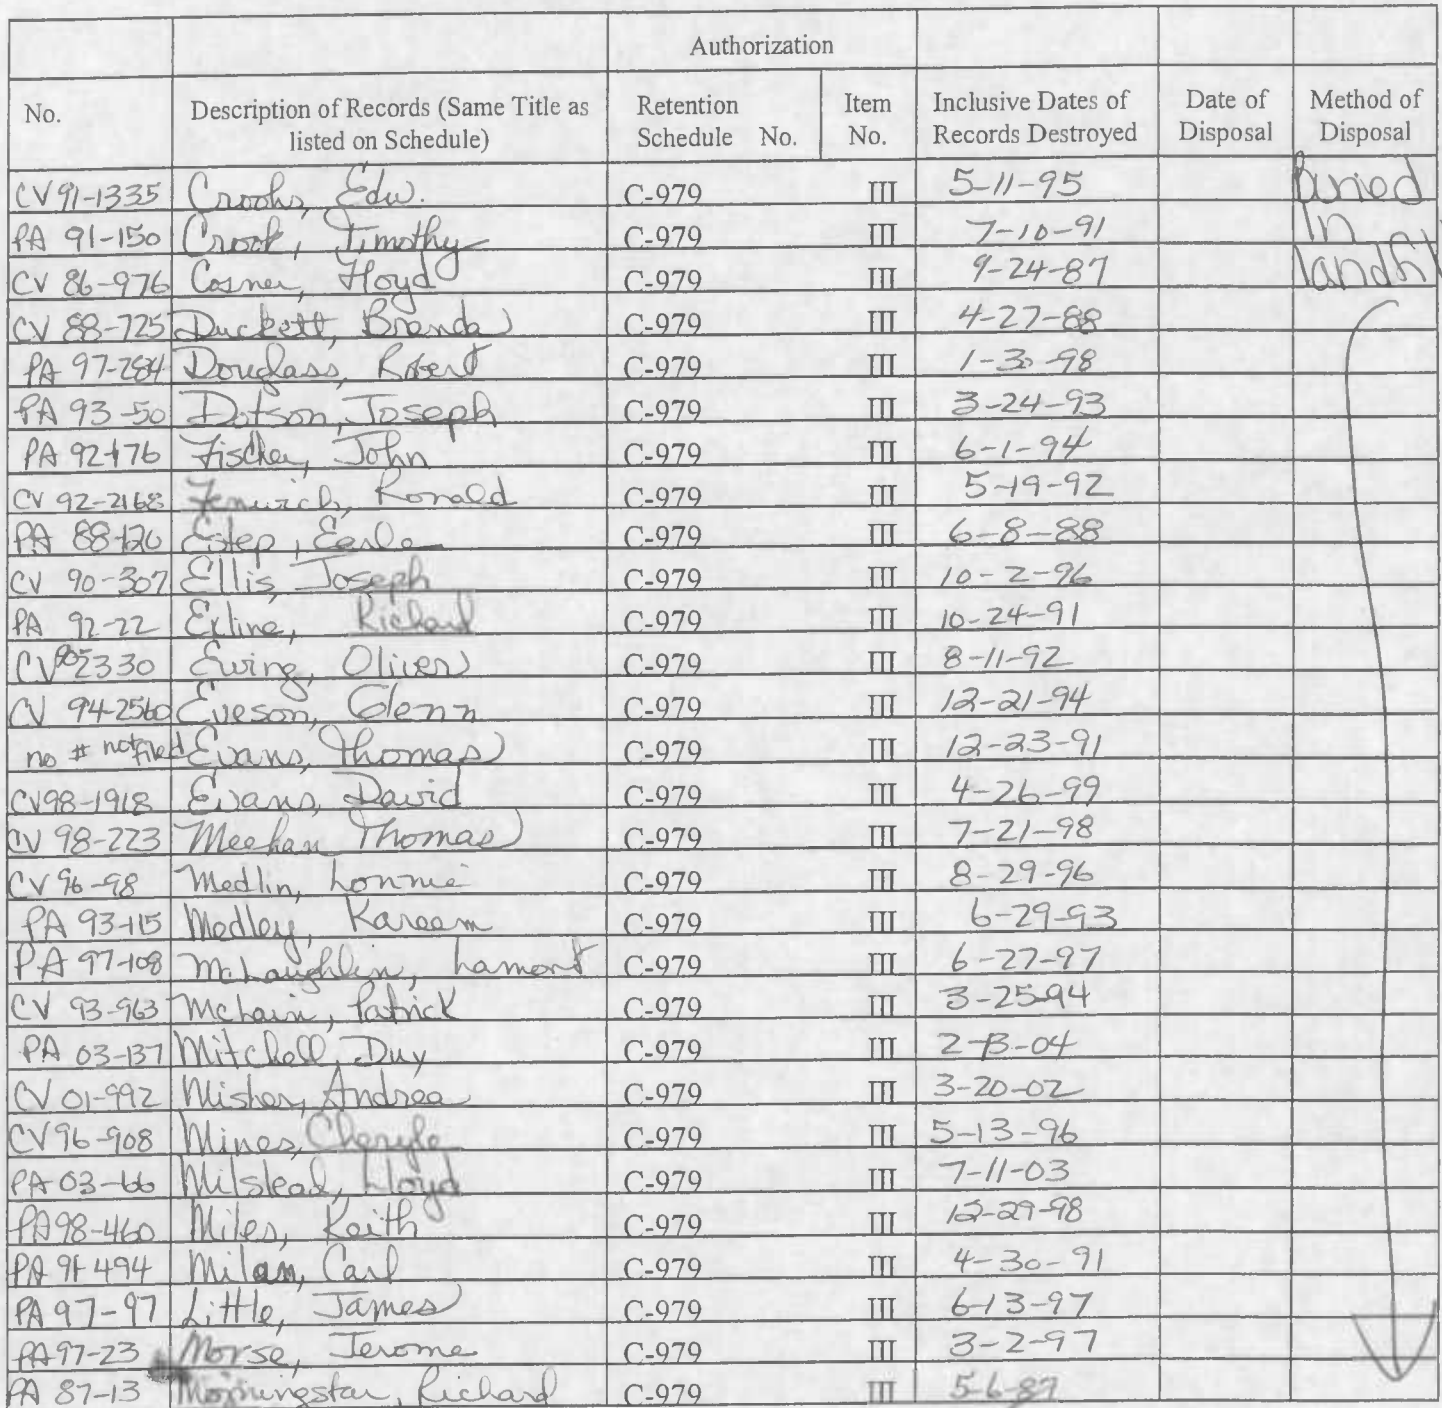 Authorization
No. Description of Records (Same Title as listed on Schedule) Retention Schedule No. Item No. Inclusive Dates of Records Destroyed Date of Disposal Method of Disposal
CV 91-1335 Crooks, Edw. C-979 III 5-11-95 Buried
PA 91-150 Crook, Timothy C-979 III 7-10-91 in
CV 86-976 Cosner, Floyd C-979 III 9-24-87 landfil
CV 88-725 Duckett, Brenda C-979 III 4-27-88
PA 97-284 Douglass, Robert C-979 III 1-30-98
PA 93-50 Dotson, Joseph C-979 III 3-24-93
PA 92-176 Fischer, John C-979 III 6-1-94
CV 92-2168 Fenwich, Ronald C-979 III 5-19-92
PA 88-126 Estep, Earle C-979 III 6-8-88
CV 90-307 Ellis, Joseph C-979 III 10-2-96
PA 92-22 Exline, Richard C-979 III 10-24-91
CV 2330 Ewing, Oliver C-979 III 8-11-92
CV 94-2560 Eveson, Glenn C-979 III 12-21-94
no # not filed Evans, Thomas C-979 III 12-23-91
CV98-1918 Evans, David C-979 III 4-26-99
CV 98-223 Meehan Thomas C-979 III 7-21-98
CV 96-98 Medlin, Lonnie C-979 III 8-29-96
PA 93-115 Medley, Kareem C-979 III 6-29-93
PA 97-108 McLaughlin, Lamont C-979 III 6-27-97
CV 93-963 McLain, Patrick C-979 III 3-25-94
PA 03-137 Mitchell, Duy C-979 III 2-13-04
CV 01-992 Misher, Andrea C-979 III 3-20-02
CV96-908 Mines, Cheryle C-979 III 5-13-96
PA 03-66 Milstead, Lloyd C-979 III 7-11-03
PA98-460 Miles, Keith C-979 III 12-29-98
PA 91-494 Milan, Carl C-979 III 4-30-91
PA 97-97 Little, James C-979 III 6-13-97
PA97-23 Morse, Jerome C-979 III 3-2-97
PA 87-13 Morningstar, Richard C-979 III 5-6-87